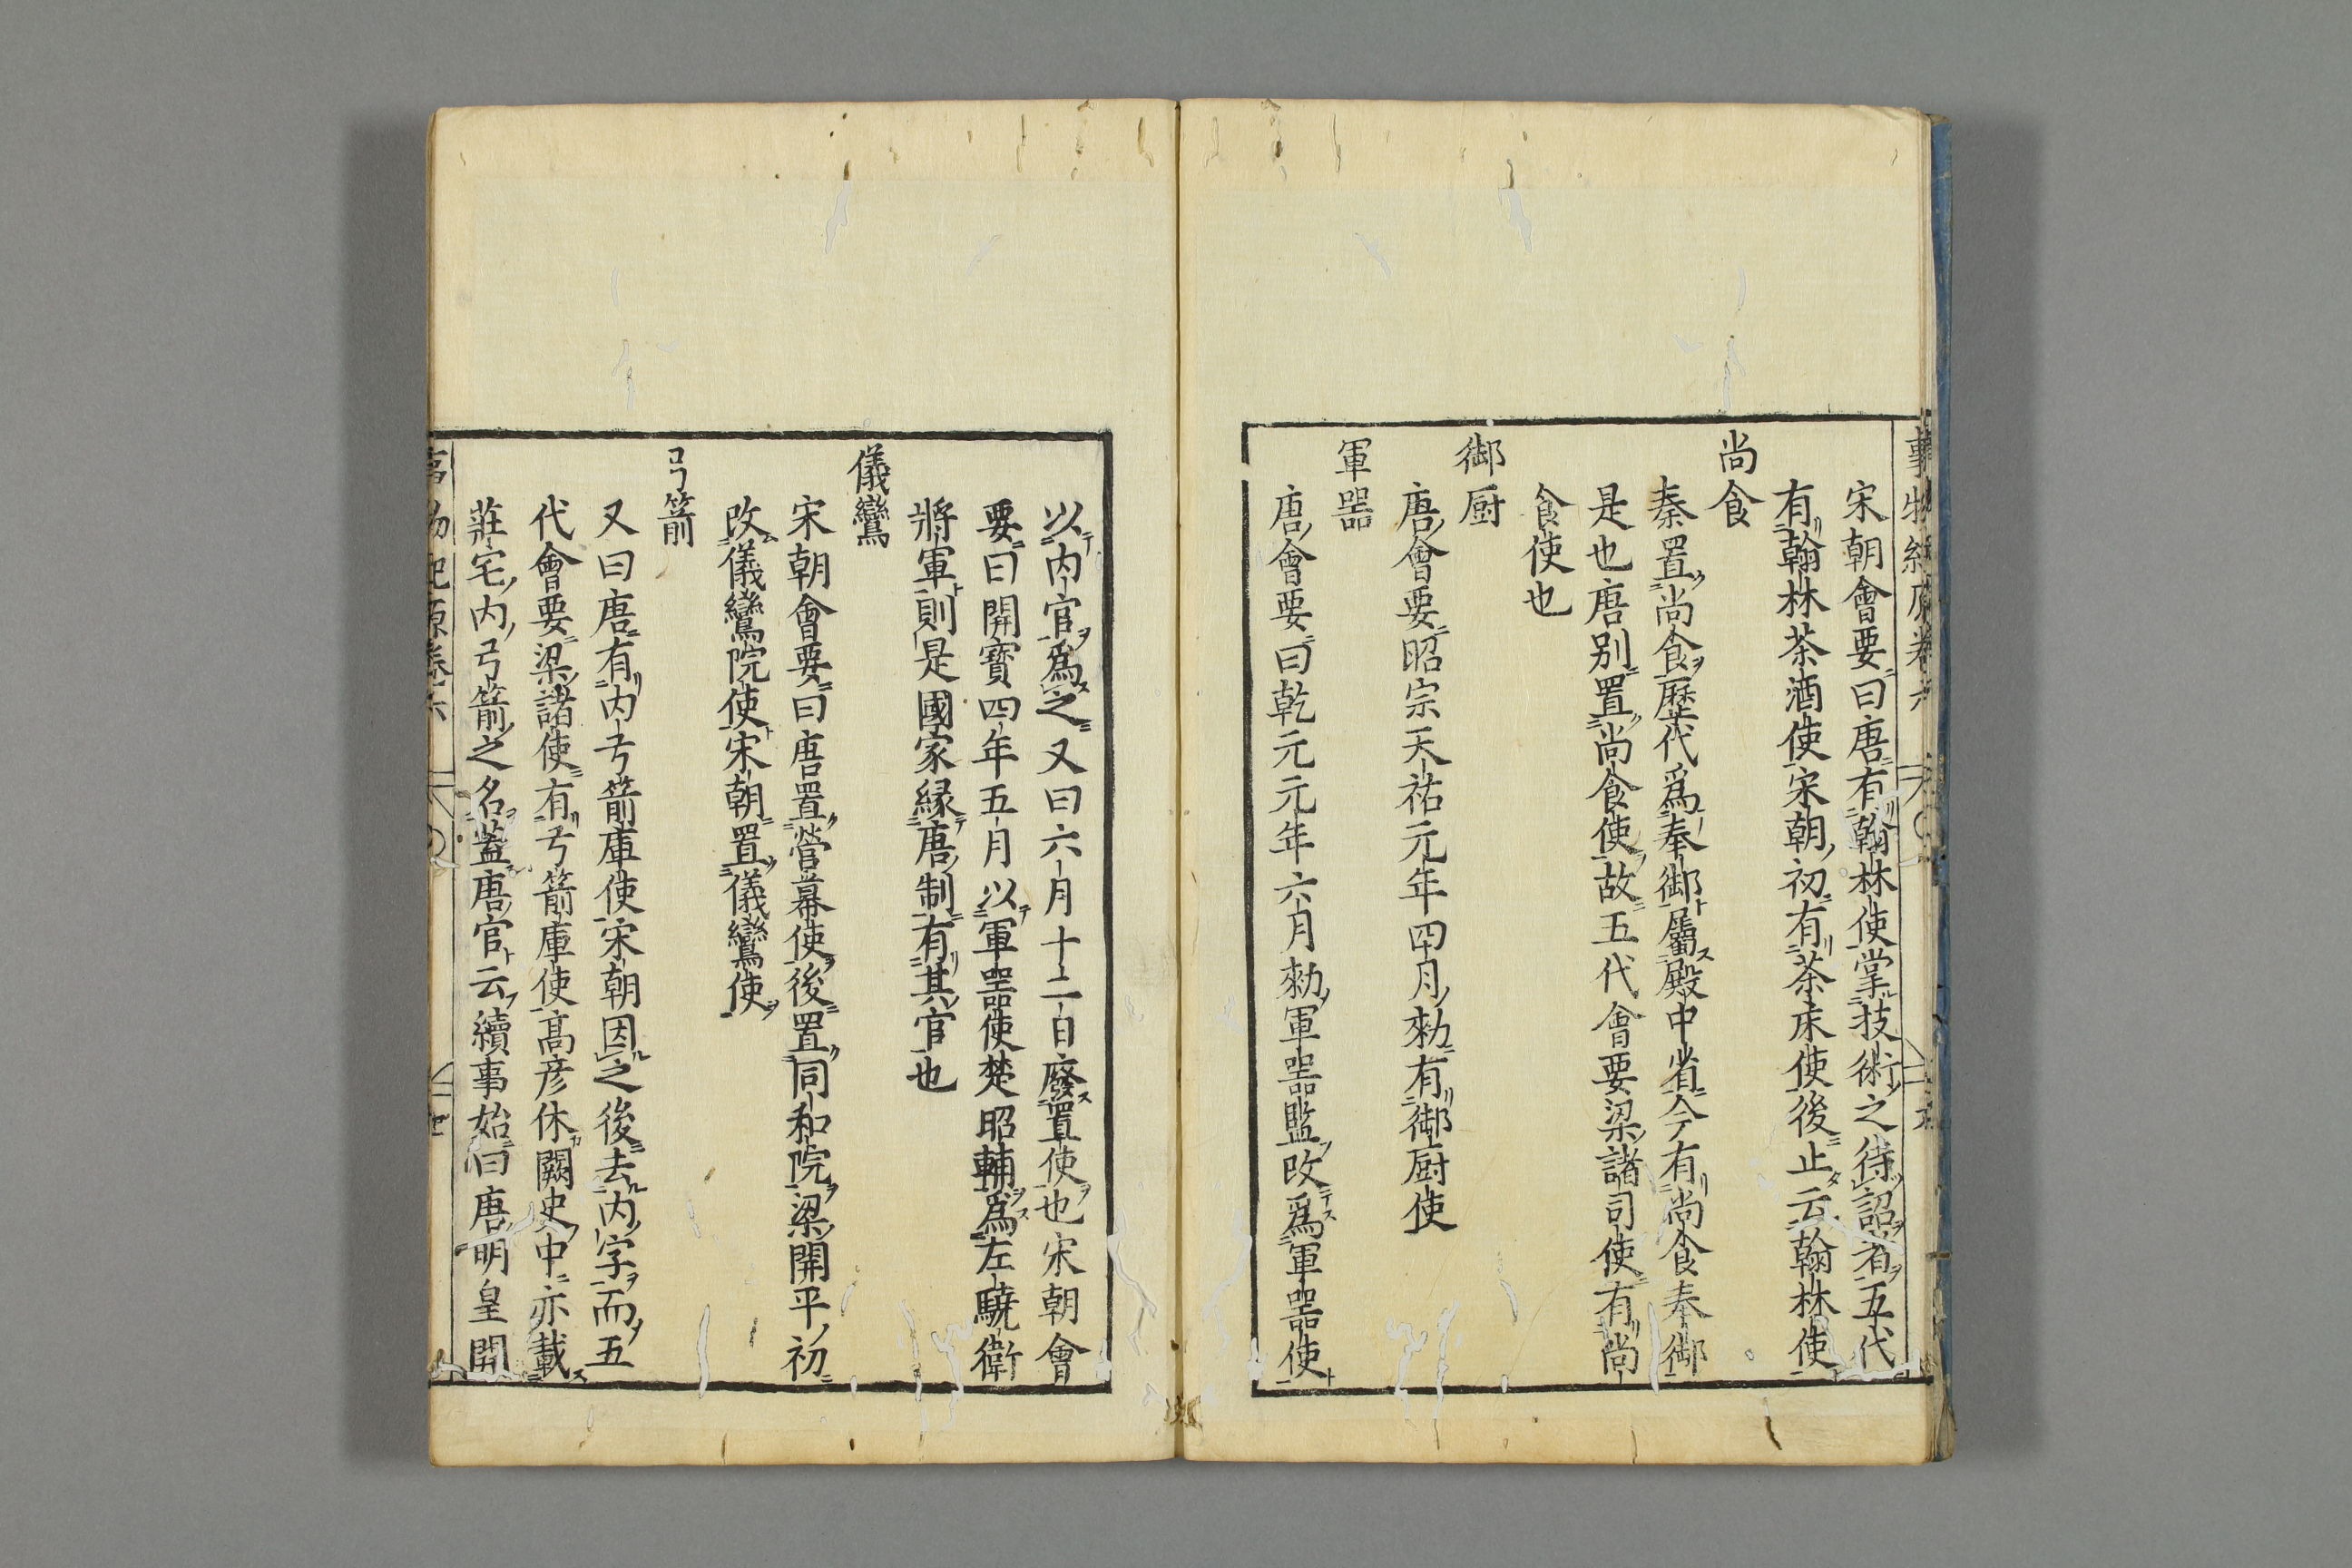 事物紀原卷六
宋朝會要曰唐有翰林使掌技術之待詔者五代
有翰林茶酒使宋朝初有茶床使後止云翰林使
尚食
秦置尚食歷代爲奉御屬殿中省今有尚食奉御
是也唐別置尚食使故五代會要梁諸司使有尚
食使也
御厨
唐會要昭宗天祐元年四月勑有御厨使
軍噐
唐會要曰乾元元年六月勑軍噐監改爲軍噐使
以内官爲之又曰六月十二日廢置使也宋朝會
要曰開寳四年五月以軍噐使楚昭輔爲左驍衛
將軍則是國家縁唐制有其官也
儀鸞
宋朝會要曰唐置營幕使後置同和院梁開平初
改儀鸞院使宋朝置儀鸞使
弓箭
又曰唐有内弓箭庫使宋朝因之後去内字而五
代會要梁諸使有弓箭庫使高彦休闕史中亦載
莊宅内弓箭之名蓋唐官云續事始曰唐明皇開
事物紀原卷六